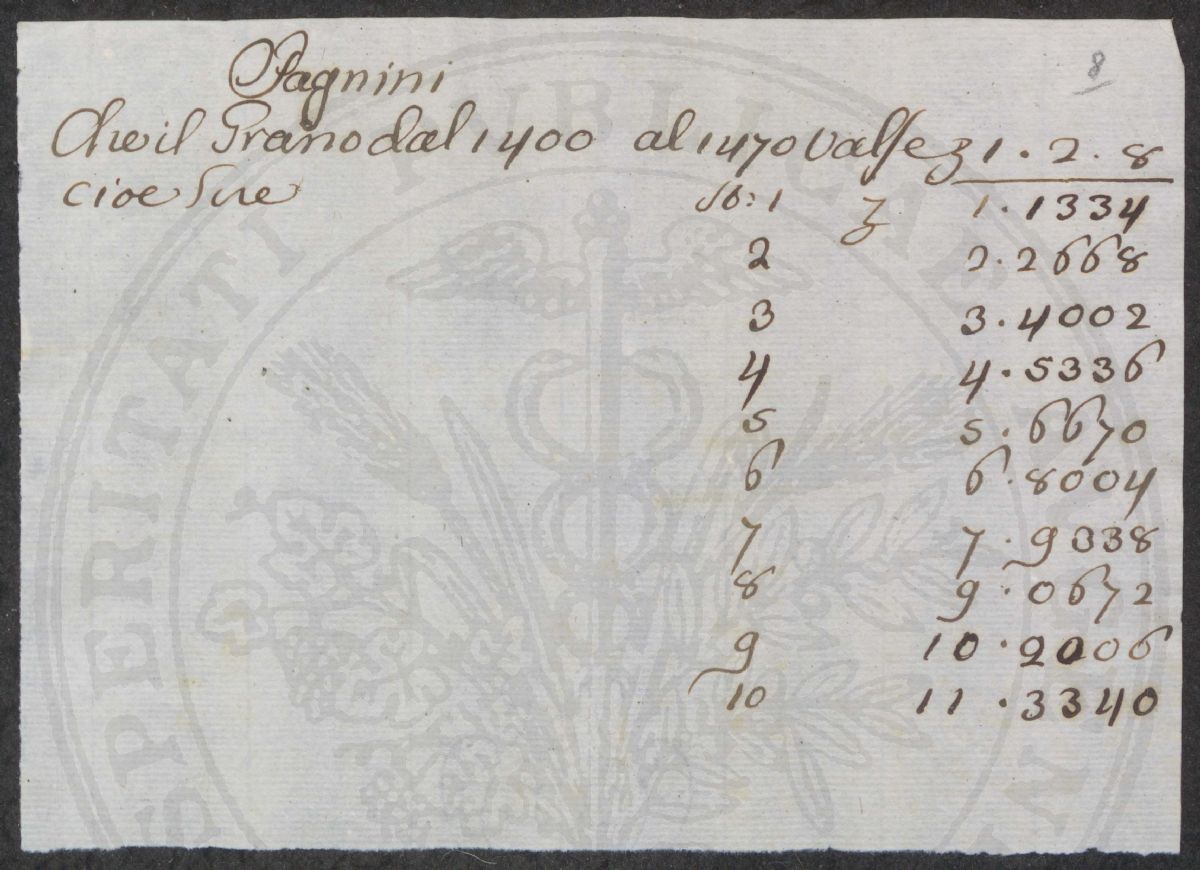 Pagnini
8
Che il Grano dal 1400 al 1470 Valsez 1.2.8
cioe Lire
lb: 1 z 1.1334
2 2.2668
3 3.4002
4 4.5336
5 5.6670
6 6.8004
7 7.9338
8 9.0672
9 10.2006
10 11.3340
SPERITATI PUBLICAE